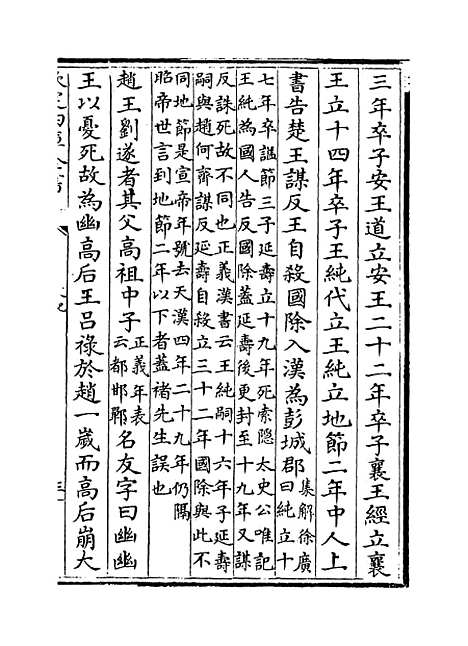 三年卒子安王道立安王二十二年卒子襄王經立襄
王立十四年卒子王純代立王純立地節二年中人上
書告楚王謀反王自殺國除入漢為彭城郡集解徐廣
曰純立十
七年卒諡節三子延壽立十九年死索隱 太史公唯記
王純為國人告反國除蓋延壽後更封至十九年又謀
反誅死故不同也正義漢書云王純嗣十六年子延壽
嗣與趙何齊謀反延壽自殺立三十二年國除與此不
同地節是宣帝年號去天漢四年二十九年仍隔
昭帝世言到地節二年以下者蓋褚先生誤也
趙王劉遂者其父高祖中子正義年表
云都邯鄲
名友字曰幽幽
王以憂死故為幽高后王呂祿於趙一嵗而高后崩大